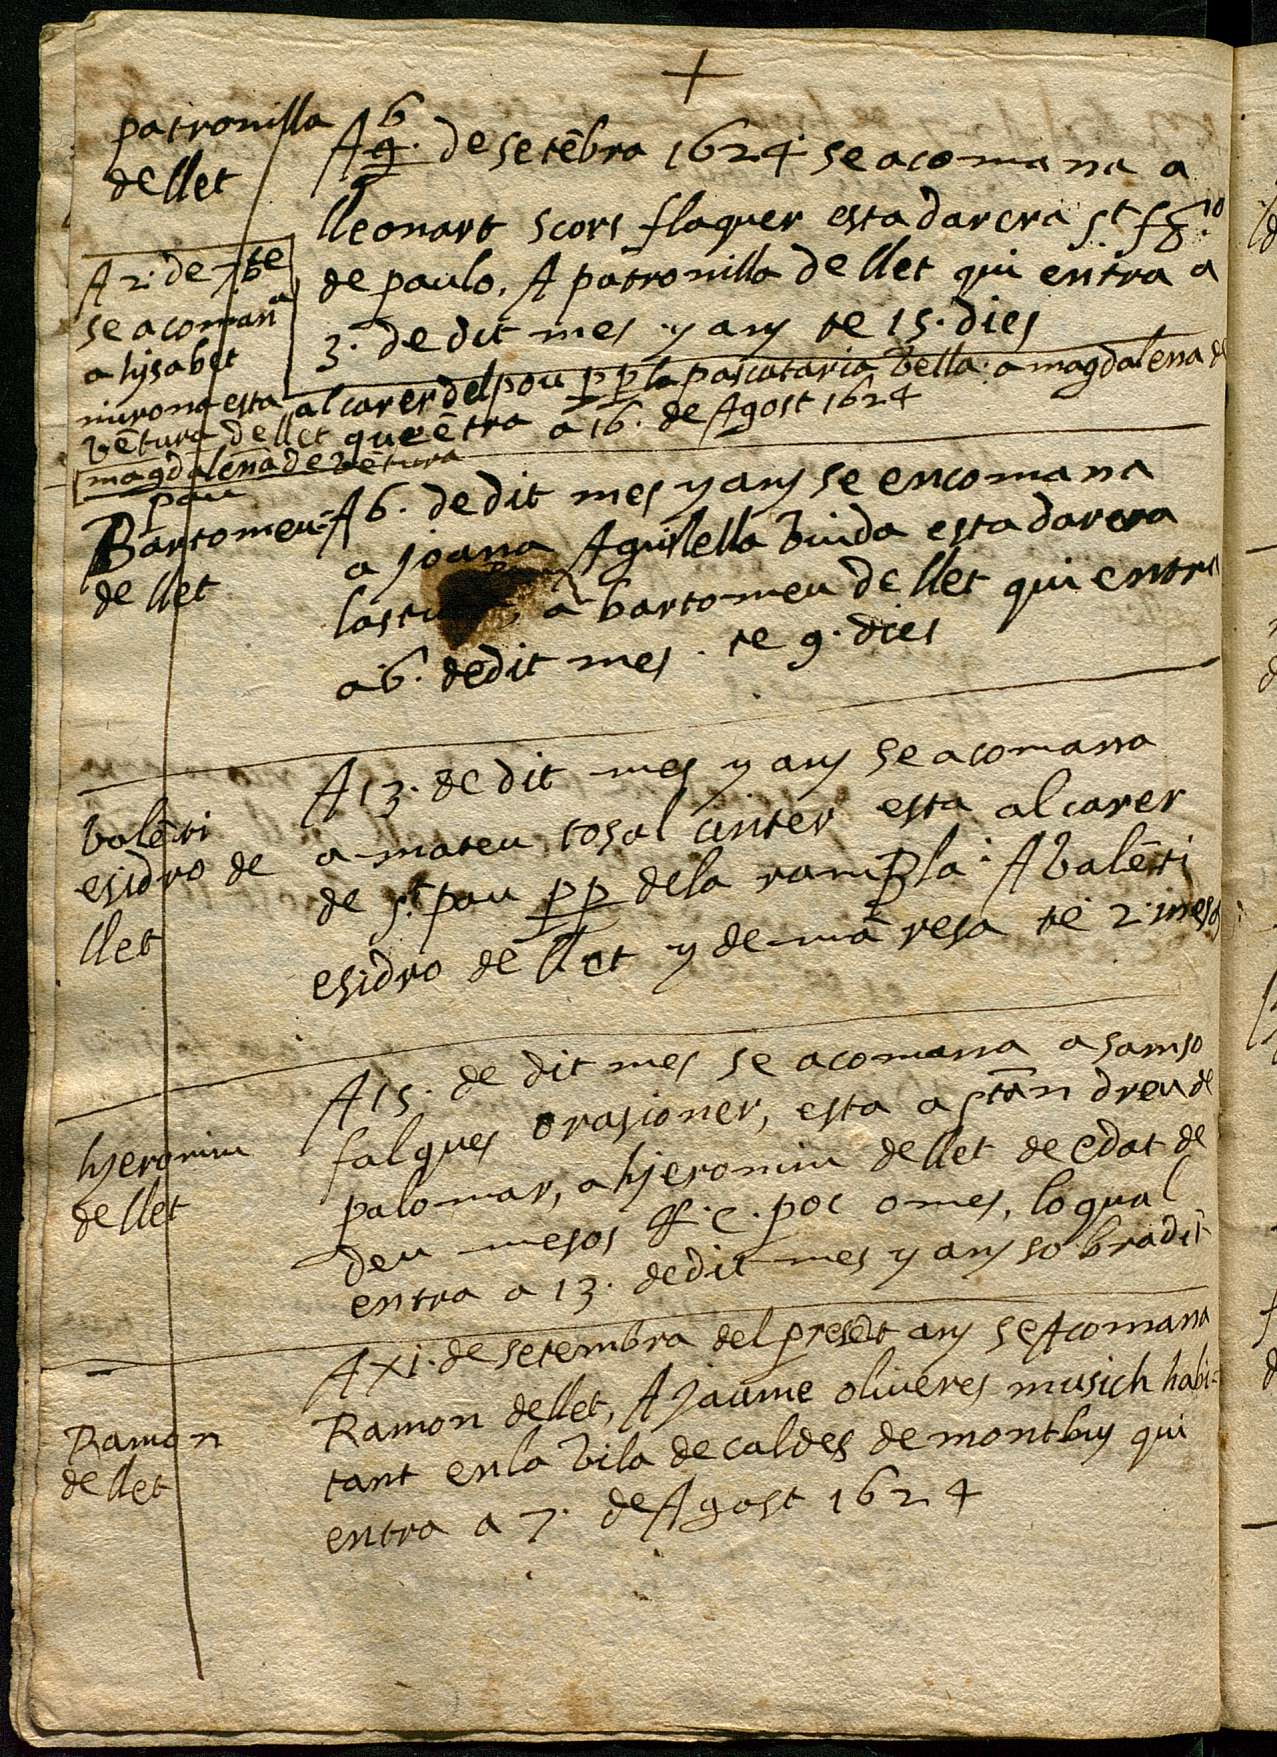 +
patronilla
dellet
A 6 9. de setẽbra 1624 se acomana a
lleonart scors flaquer esta darera st. frco
de paulo, A patronilla de llet qui entra a
3. de dit mes y any te 15. dies
A 2. de 7bre
se acomana
a hysabet
nirona esta al carer del pou pp la pascataria vella: a magdalena de
vẽtura de llet que ẽtra a 16. de Agost 1624
magdalena de vẽtura
pau
Bartomeu
de llet
A 6. de dit mes y any se encomana
a joana Aguilella viuda esta darera
a bartomeu de llet qui entra
a 6. de dit mes. te 9. dies
valẽti
esidro de
llet
A 13. de dit mes y any se acomana
a mateu tosal cinter esta al carer
de st. pau pp de la rambla. A valẽti
esidro de llet y de mãresa te 2. mesos
hjeronim
de llet
A 15. de dit mes se acomana a samso
falques orasioner, esta a st andreu de
palomar, a hjeronim de llet de edat de
deu mesos poc o mes, lo qual
entra a 13. de dit mes y any sobradit
Ramon
de llet
A xi. de setembra del presẽt any se Acomana
Ramon de llet, A jaume oliveres musich habi-
tant en la vila de caldes de montbuy qui
entra a 7. de Agost 1624